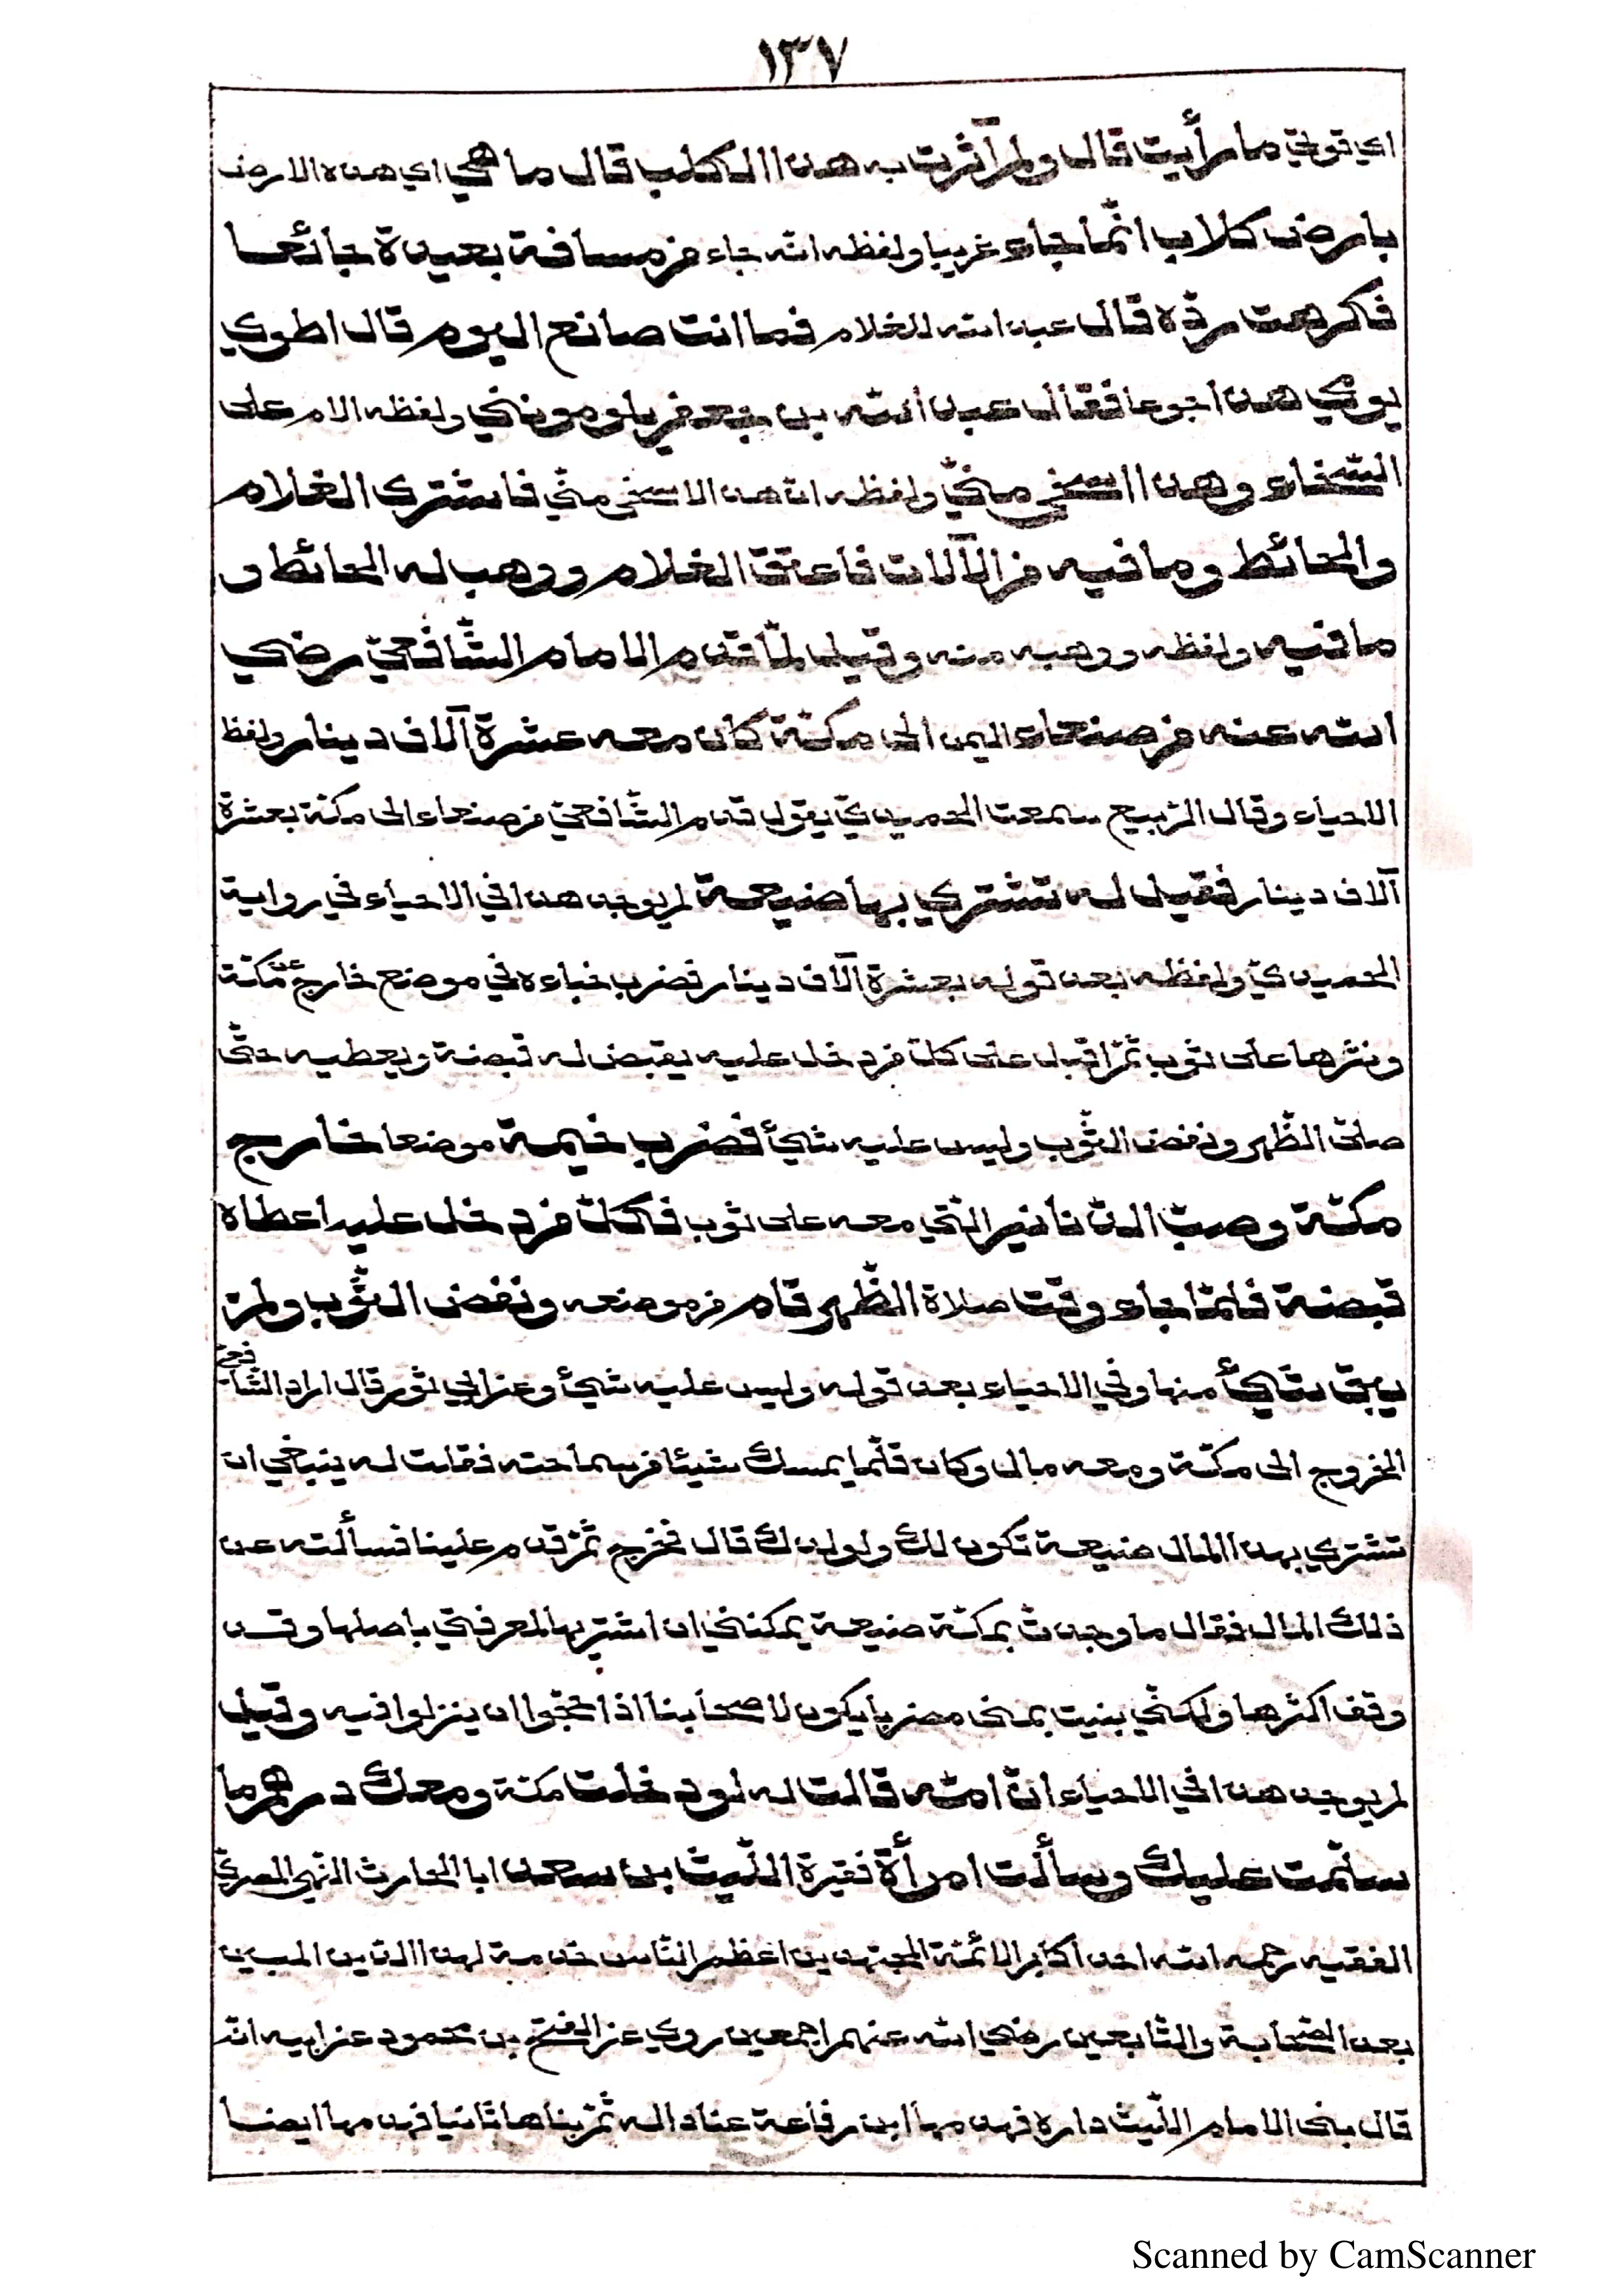 ١٣٧
اي قوتي ما رأيت قال ولم آثرت به هذا الكلب قال ما هي اي هذه الارض
بارض كلاب انّما جاء غريبا ولفظه انه جاء من مسافة بعيدة جائعا
فكرهت ردّه قال عبد الله للغلام فما انت صانع اليوم قال اطوي
يومي هذا جوعا فقال عبد الله بن جعفر يلومونني ولفظه الام على
السّخاء وهذا اسخى منّي ولفظه ان هذا لاسخى منّي فاشترى الغلام
والحائط وما فيه من الآلات فاعتق الغلام ووهب له الحائط و
ما فيه ولفظه ووهبه منه وقيل لمّا قدم الامام الشّافعيّ رضي
الله عنه من صنعاء اليمن الى مكّة كان معه عشرة آلاف دينار ولفظ
الاحياء وقال الرّبيع سمعت الحميديّ يقول قدم الشّافعيّ من صنعاء الى مكّة بعشرة
آلاف دينار فقيل له تشتري بها ضيعة لم يوجد هذا في الاحياء في رواية
الحميديّ ولفظه بعد قوله بعشرة آلاف دينار فضرب خباءه في موضع خارج عن مكّة
ونثرها على ثوب ثمّ اقبل على كلّ من دخل عليه يقبض له قبضة ويعطيه حتّى
صلّى الظّهر ونفض الثّوب وليس عليه شيئ فضرب خيمة موضعا خارج
مكّة وصبّ الدّنانير الّتي معه على ثوب فكلّ من دخل عليه اعطاه
قبضة فلمّا جاء وقت صلاة الظّهر قام من موضعه ونفض الثّوب ولم
يبق شيئ منها وفي الاحياء بعد قوله وليس عليه شيئ وعن ابي ثور قال اراد الشّافعيّ
الخروج الى مكّة ومعه مال وكان قلّما يمسك شيئا من سماحته فقلت له ينبغي ان
تشتري بهذا المال ضيعة تكون لك ولولدك قال فخرج ثمّ قدم علينا فسألته عن
ذلك المال فقال ما وجدت بمكّة ضيعة يمكنني ان اشتريها لمعرفتي باصلها وقد
وقف اكثرها ولكنّي بنيت بمنى مضربا يكون لاصحابنا اذا حجّوا ان ينزلوا فيه وقيل
لم يوجد هذا في الاحياء انّ امّه قالت له لو دخلت مكّة ومعك درهم ما
سلّمت عليك وسألت امرأة فقيرة اللّيث بن سعد ابا الحارث الفهمي المصريّ
الفقيه رحمه الله احد اكابر الائمّة المجتهدين اعظم النّاس خدمة لهذا الدّين المبين
بعد الصّحابة والتّابعين رضي الله عنهم اجمعين روي عن الفتح بن محمود عن ابيه انّه
قال بنى الامام اللّيث داره فهدمها ابن رفاعة عنادا له ثمّ بناها ثانيا فهدمها ايضا
Scanned by CamScanner